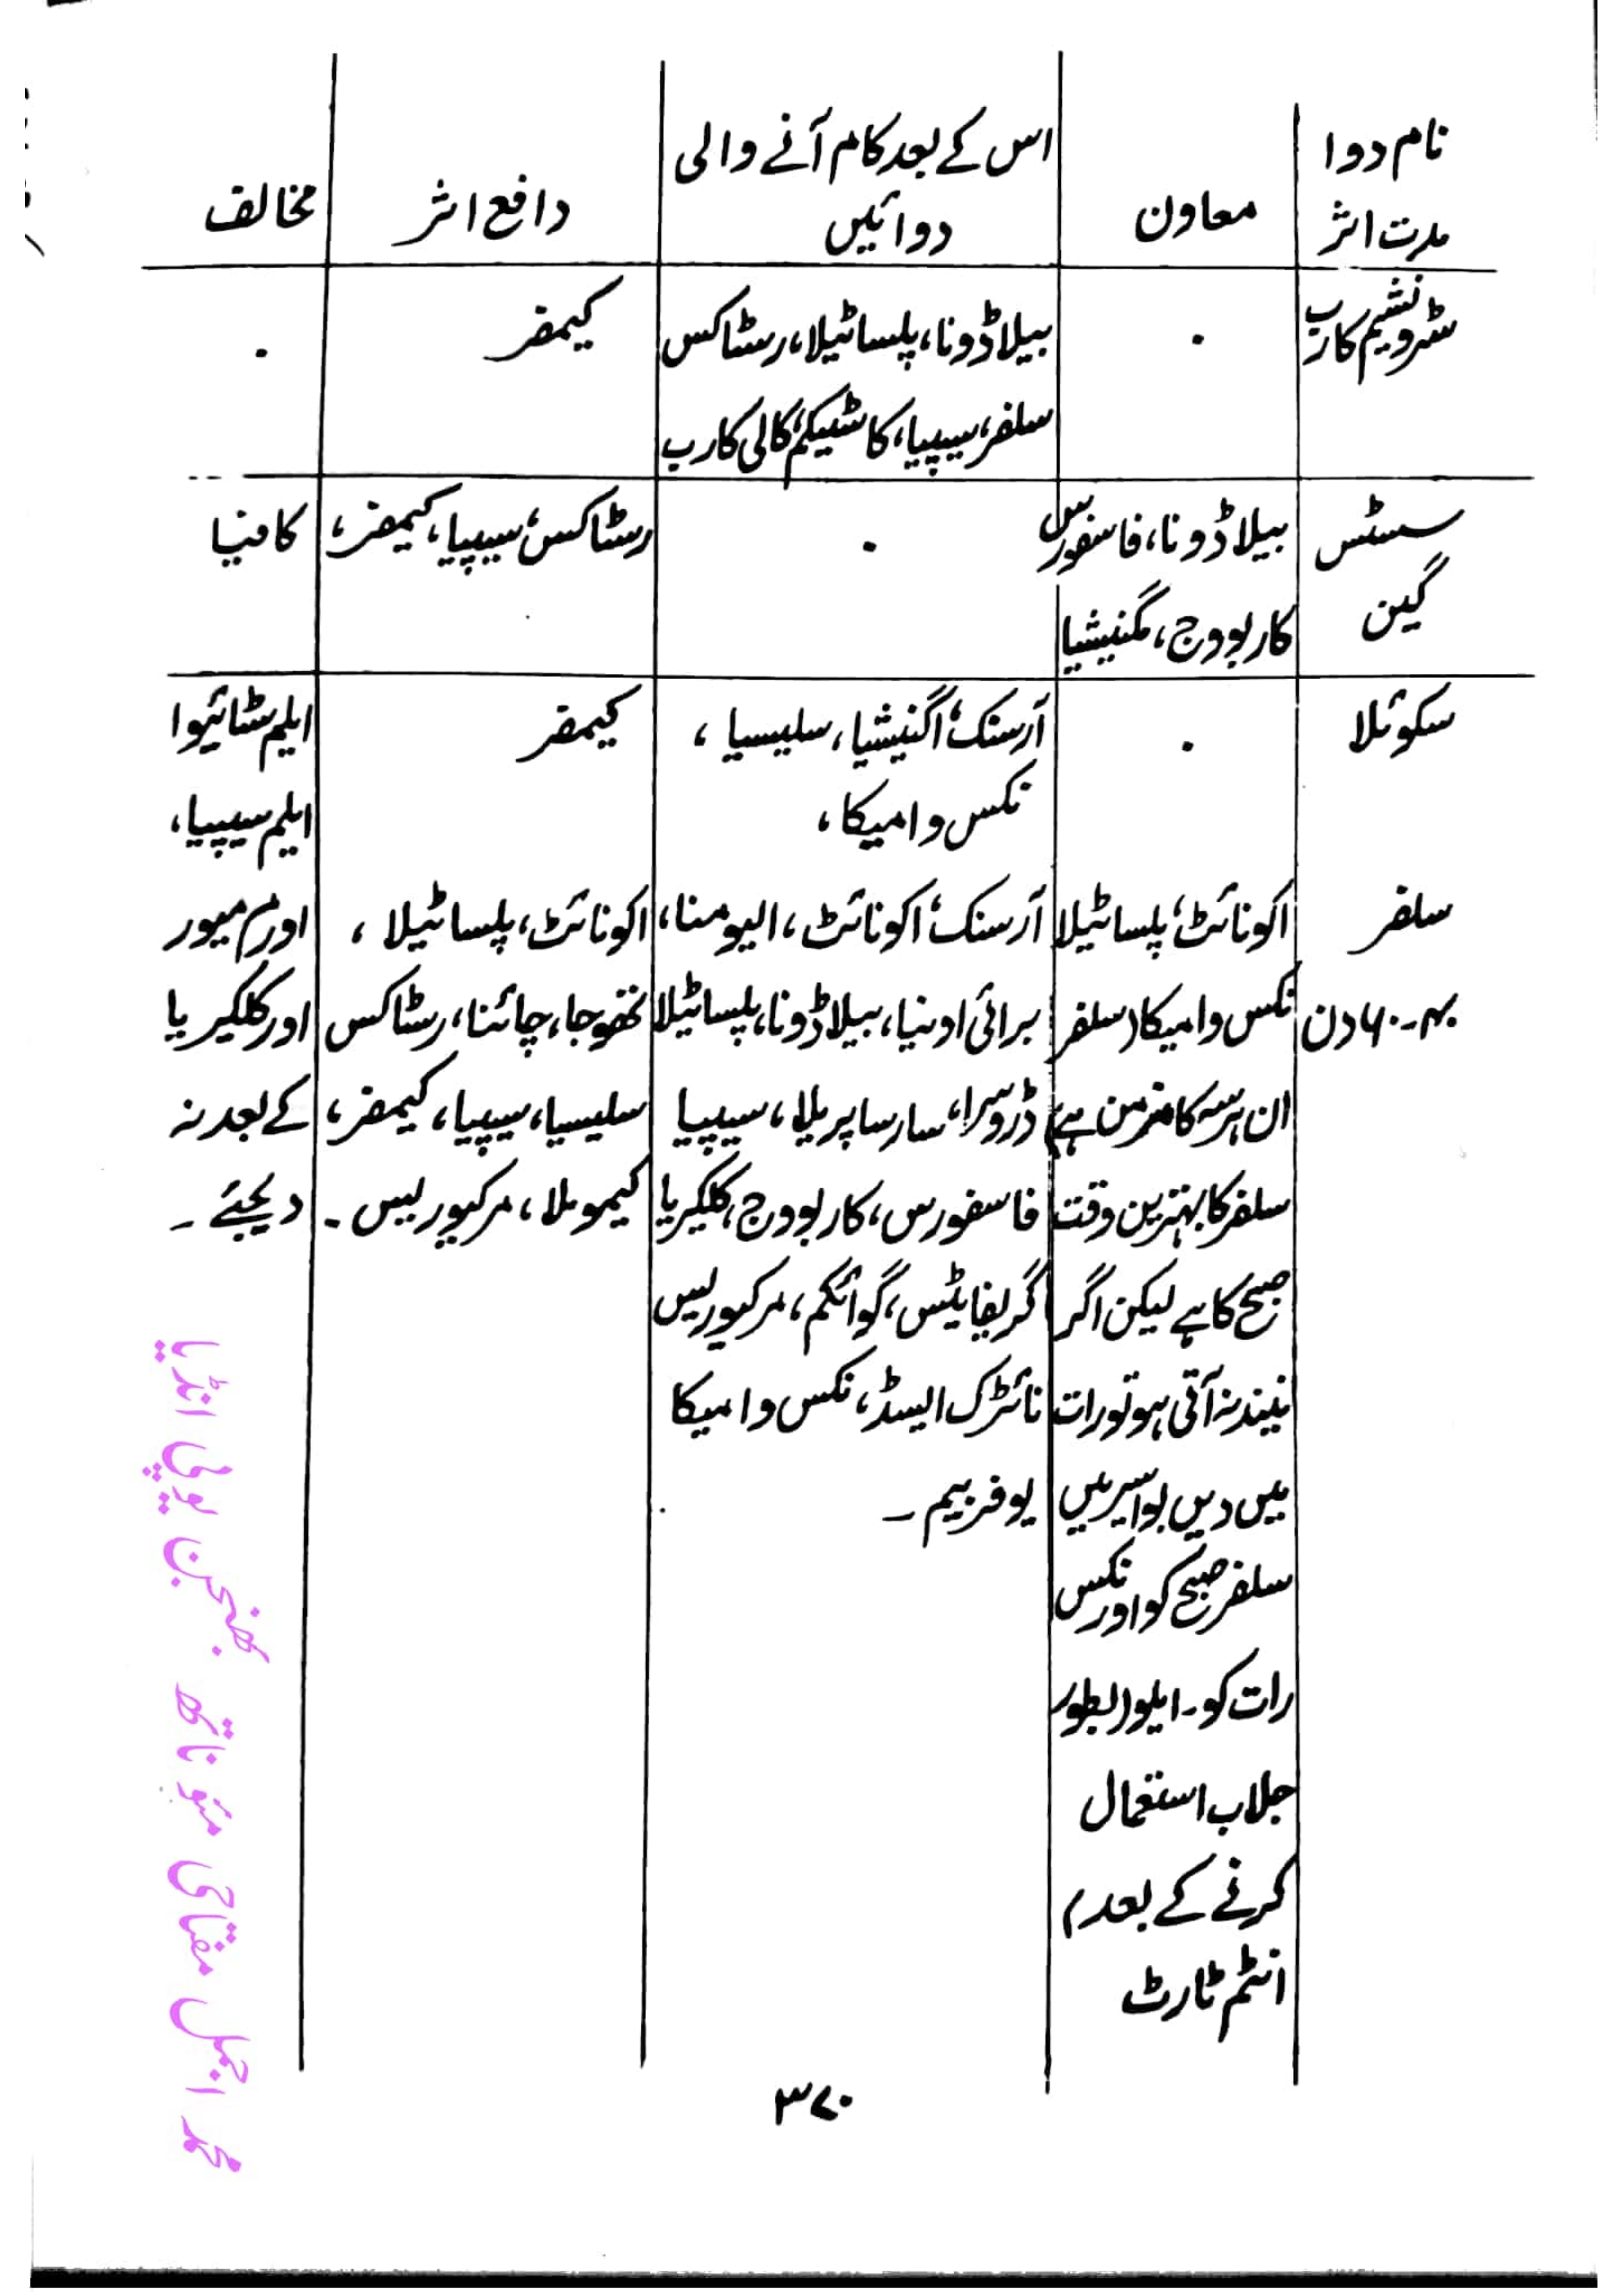 نام دوا
مدت اثر
معاون
اس کے بعد کام آنے والی
دوائیں
دافع اثر
مخالف
سٹرونشیم کارب
.
بیلاڈونا، پلساٹیلا، رسٹاکس
سلفر، سیپیا، کاسٹیکم، کالی کارب
کیمفر
.
سسٹس
گین
بیلاڈونا، فاسفورس
کاربووج، مگنیشیا
.
رسٹاکس، سیپیا، کیمفر،
کافیا
سکوئلا
.
آرسنک، اگنیشیا، سلیسیا،
نکس وامیکا،
کیمفر
ایلم سٹائیوا
ایلم سیپیا،
سلفر
۴۰۔۶۰ دن
اکونائٹ، پلساٹیلا
نکس وامیکا (سلفر
ان ہر سہ کا مزمن ہے)
سلفر کا بہترین وقت
صبح کا ہے لیکن اگر
نیند نہ آتی ہو تو رات
میں دیں بواسیر میں
سلفر صبح کو اور نکس
رات کو۔ ایلو (بطور
جلاب استعمال
کرنے کے بعد)
انٹم ٹارٹ
آرسنک، اکونائٹ، الیومنا،
برائی اونیا، بیلاڈونا، پلساٹیلا
ڈروسرا، سارساپریلا، سیپیا
فاسفورس، کاربووج، کلکیریا
گریفائٹس، گوائکم، مرکیورلیس
نائٹرک ایسڈ، نکس وامیکا
یوفربیم۔
اکونائٹ، پلساٹیلا،
تھوجا، چائنا، رسٹاکس
سلیسیا، سیپیا، کیمفر،
کیموملا، مرکیورلیس۔
اورم میور
اور کلکیریا
کے بعد نہ
دیجئے۔
محمد اجمل مفتاحی مئو ناتھ بھنجن یوپی انڈیا
۳۷۰